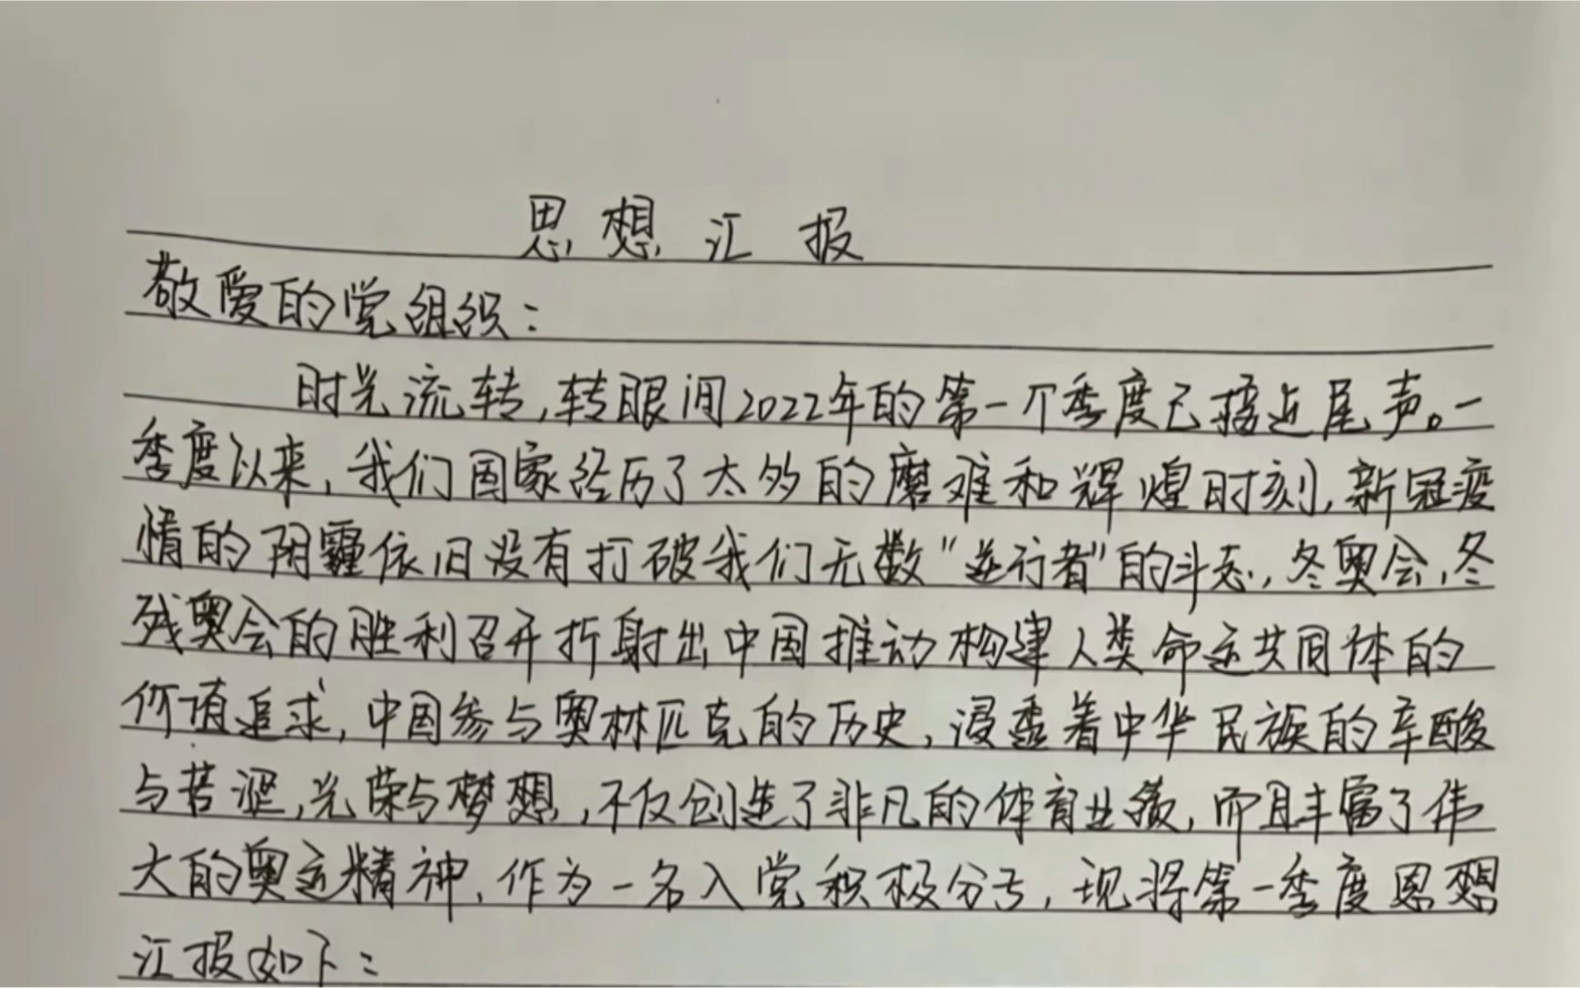 思想汇报
敬爱的党组织：
时光流转，转眼间2022年的第一个季度已接近尾声。一
季度以来，我们国家经历了太多的磨难和辉煌时刻，新冠疫
情的阴霾依旧没有打破我们无数“逆行者”的斗志，冬奥会，冬
残奥会的胜利召开折射出中国推动构建人类命运共同体的
价值追求，中国参与奥林匹克的历史，浸透着中华民族的辛酸
与苦涩，光荣与梦想，不仅创造了非凡的体育业绩，而且丰富了伟
大的奥运精神，作为一名入党积极分子，现将第一季度思想
汇报如下：